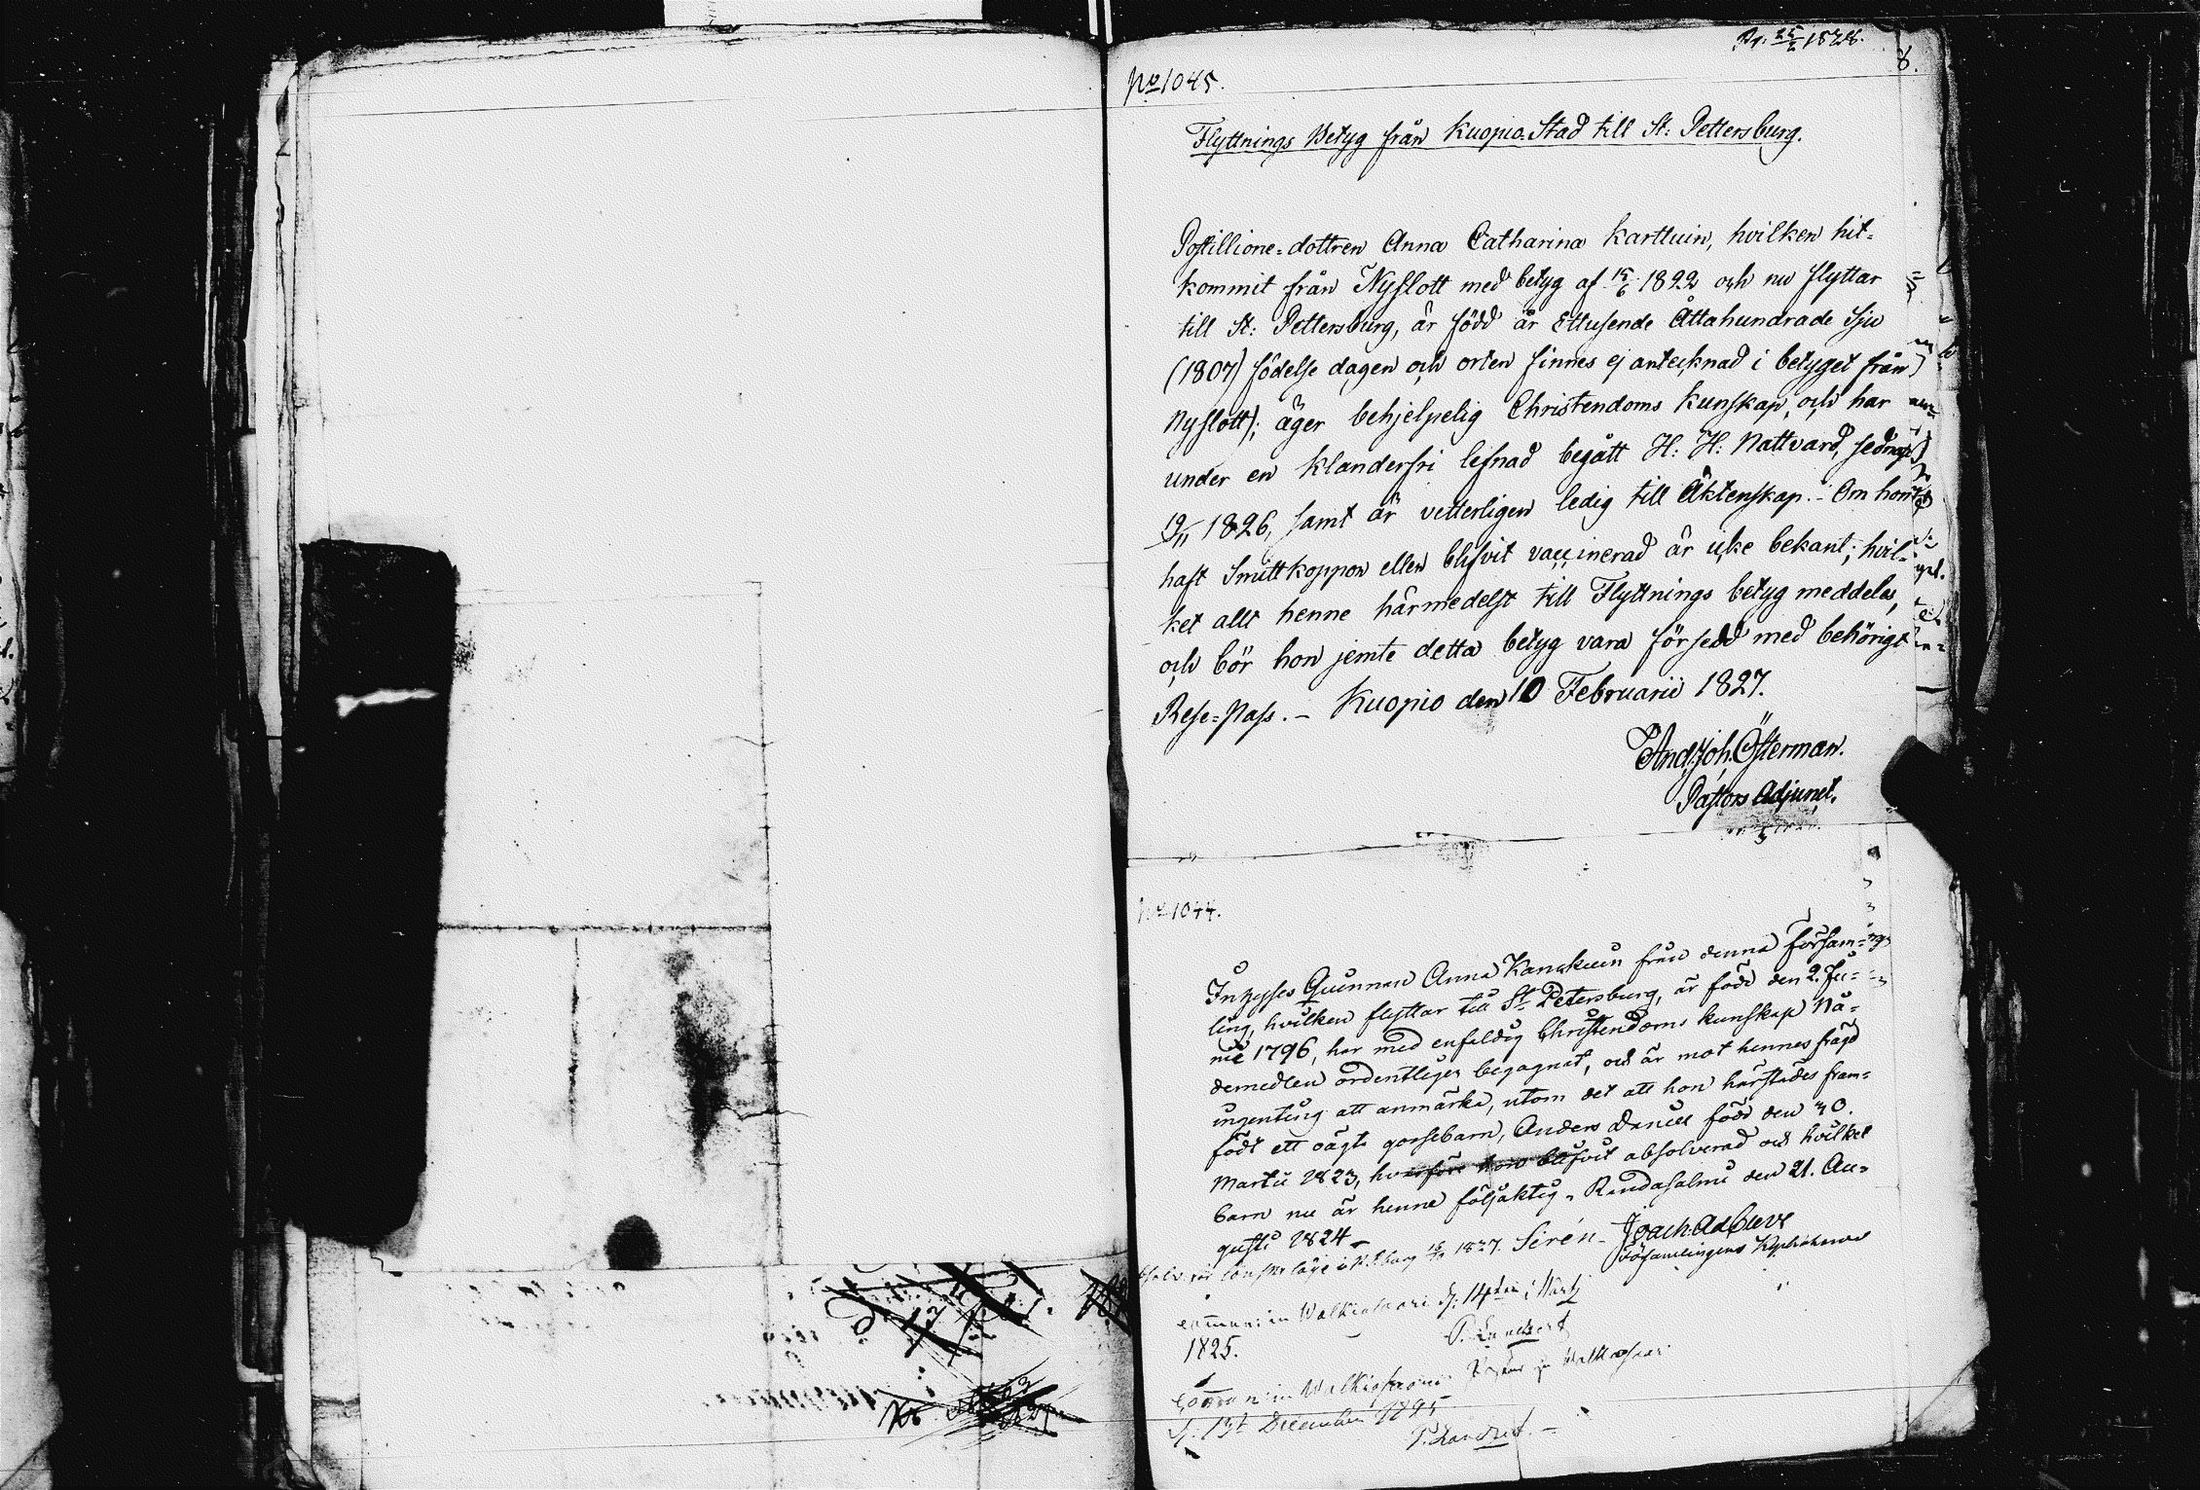 Pr. 25/2 1828.
8.
No 1045.
Flyttnings Betyg från Kuopio Stad till St: Pettersburg.
Postillions-dottren Anna Catharina Karttuin, hvilken hit-
kommit från Nyslott med betyg af 15/6 1822 och nu flyttar
till St: Pettersburg, är född år Ettusende Åttahundrade Sju
(1807) födelse dagen och orten finnes ej antecknad i betyget från
Nyslott); äger behjelpelig Christendoms kunskap, och har
under en klanderfri lefnad begått H: H: Nattvard, sednast
19/11 1826, samt är vetterligen ledig till Äktenskap. - Om hon
haft Smittkoppor eller blifvit vaccinerad är icke bekant; hvil-
ket allt henne härmedelst till Flyttnings betyg meddelas,
och bör hon jemte detta betyg vara försedd med behörigt
Rese-Pass. - Kuopio den 10 Februarii 1827.
And: Joh. Österman.
Pastors Adjunct.
No 1044.
Inhyses Quinnan Anna Kanskuin från denna Försam-
ling, hvilken flyttar till St Petersburg, är född den 2. Ju-
nii 1796, har med enfaldig Christendoms kunskap Nå-
demedlen ordentligen begagnat, och är mot hennes frägd
ingenting att anmärka, utom det att hon härstädes fram-
födt ett oägta gossebarn, Anders Daniel född den 30.
Martii 1823, hvarföre hon blifvit absolverad och hvilket
barn nu är henne följaktig. Randasalmi den 21. Au-
gusti 1824
Joach. Ad Cuve
1827. Sirén
Församlingens
commun: in Walkiasaari d: 14den Martz
1825.
commun: in Walkiasaari
d. 13t December 1825